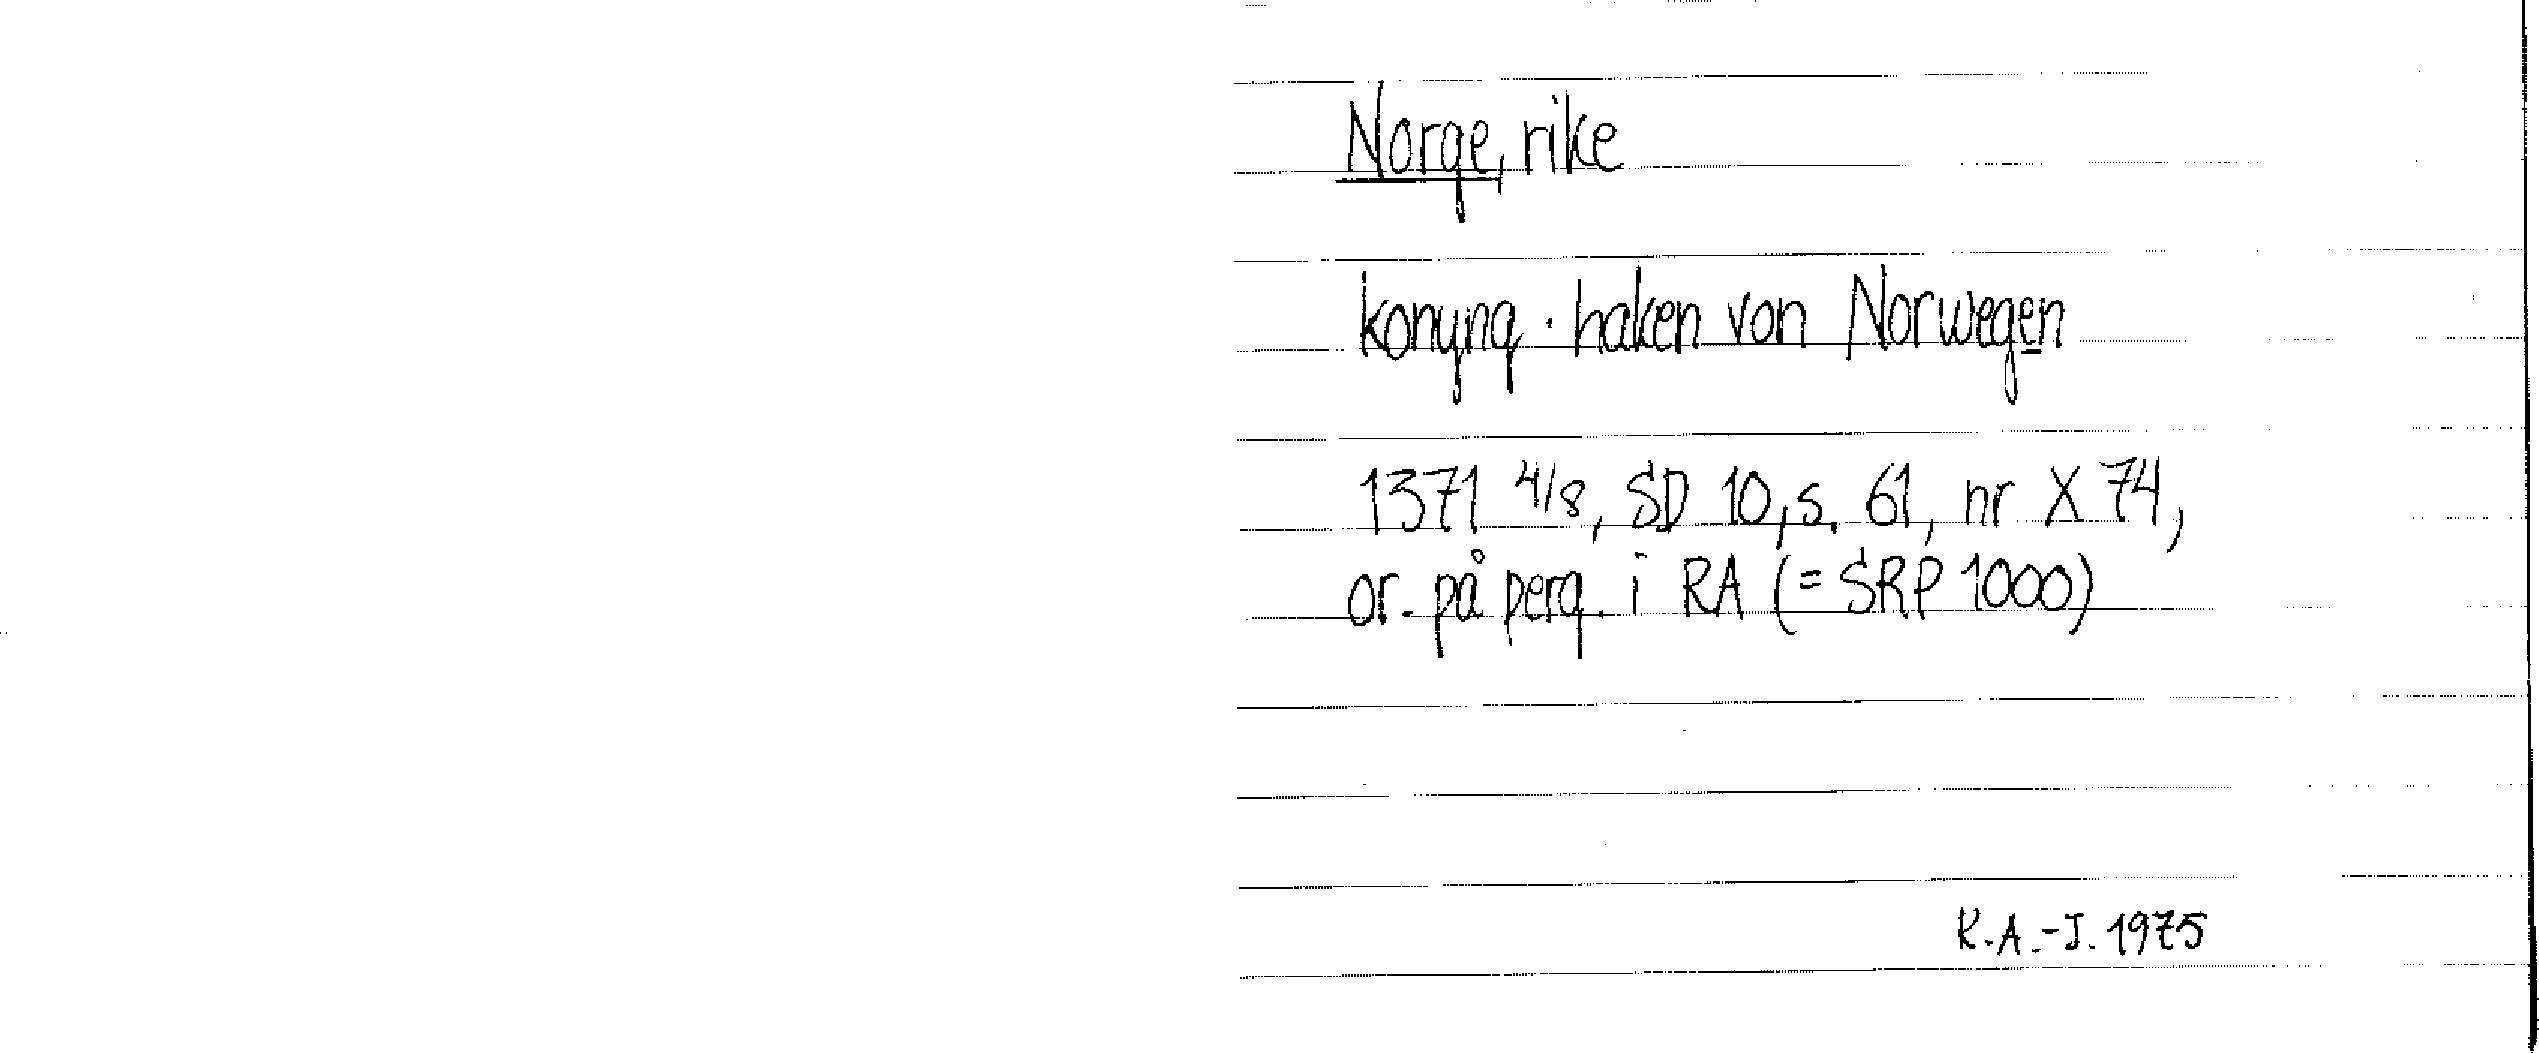 Norge, rike
konyng · haken von Norwegen
1371 4/8, SD 10, s. 61, nr X 74,
or. på perg. i RA (= SRP 1000)
K.A.-J. 1975